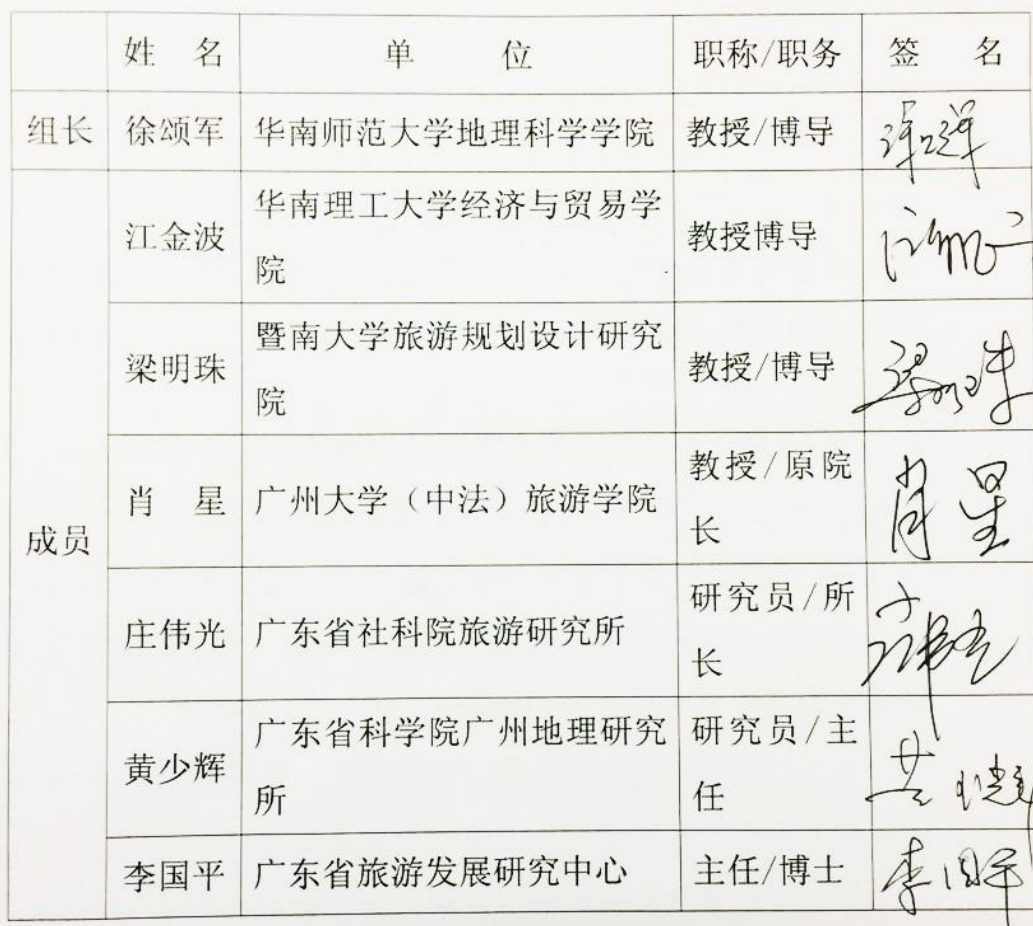 姓 名 单 位 职称/职务 签 名
组长 徐颂军 华南师范大学地理科学学院 教授/博导
江金波 华南理工大学经济与贸易学
院 教授博导
梁明珠 暨南大学旅游规划设计研究
院 教授/博导 梁明珠
成员 肖 星 广州大学（中法）旅游学院 教授/原院
长 肖星
庄伟光 广东省社科院旅游研究所 研究员/所
长
黄少辉 广东省科学院广州地理研究
所 研究员/主
任
李国平 广东省旅游发展研究中心 主任/博士 李国平